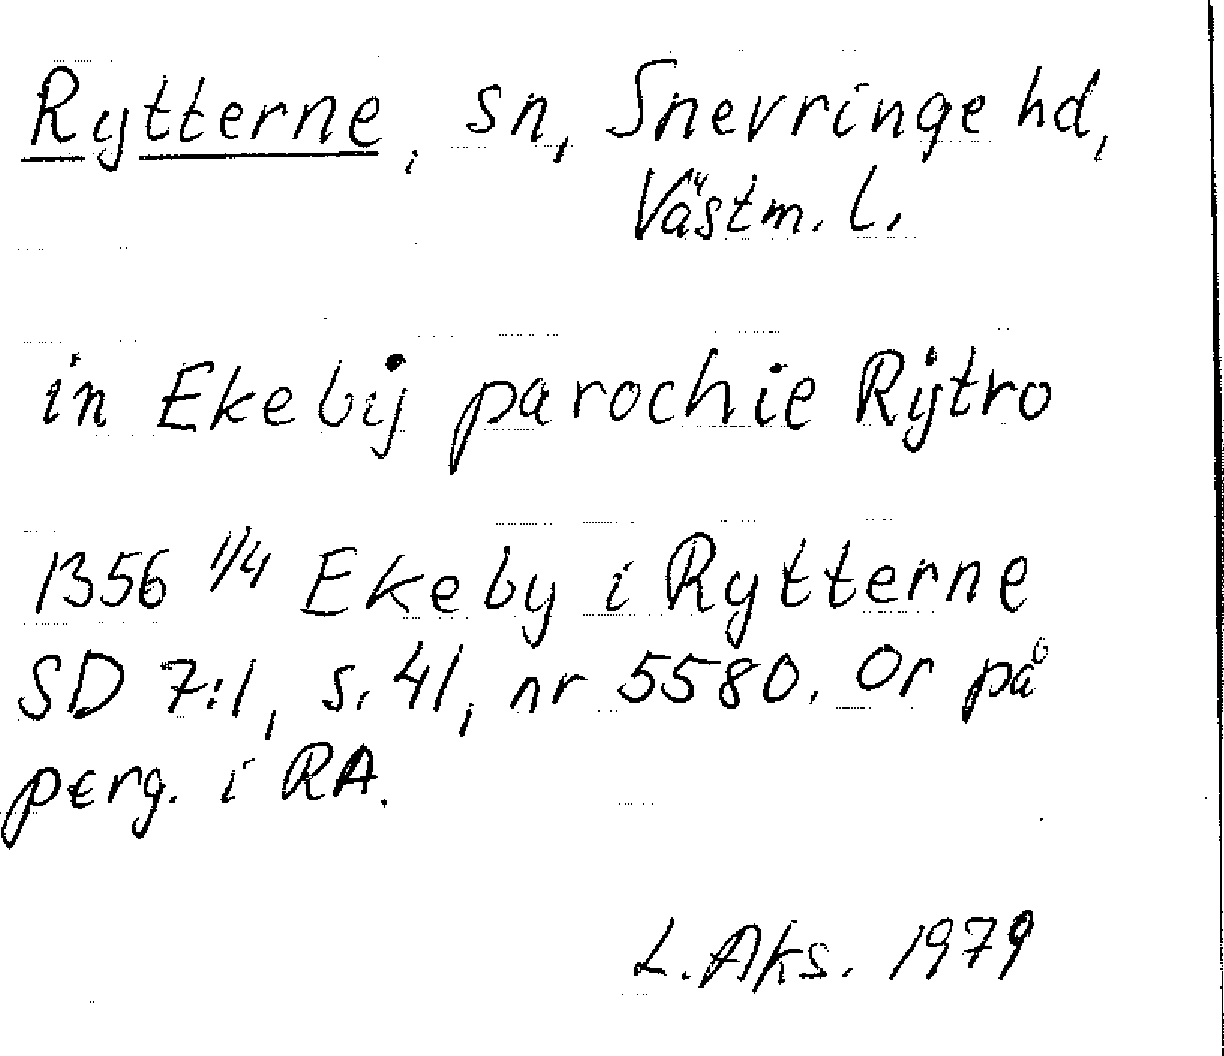 Rytterne, sn, Snevringe hd,
Västm. l.
in Ekebÿ parochie Rÿtro
1356 1/4 Ekeby i Rytterne
SD 7:1, s. 41, nr 5580. Or på
perg. i RA.
L. Aks. 1979